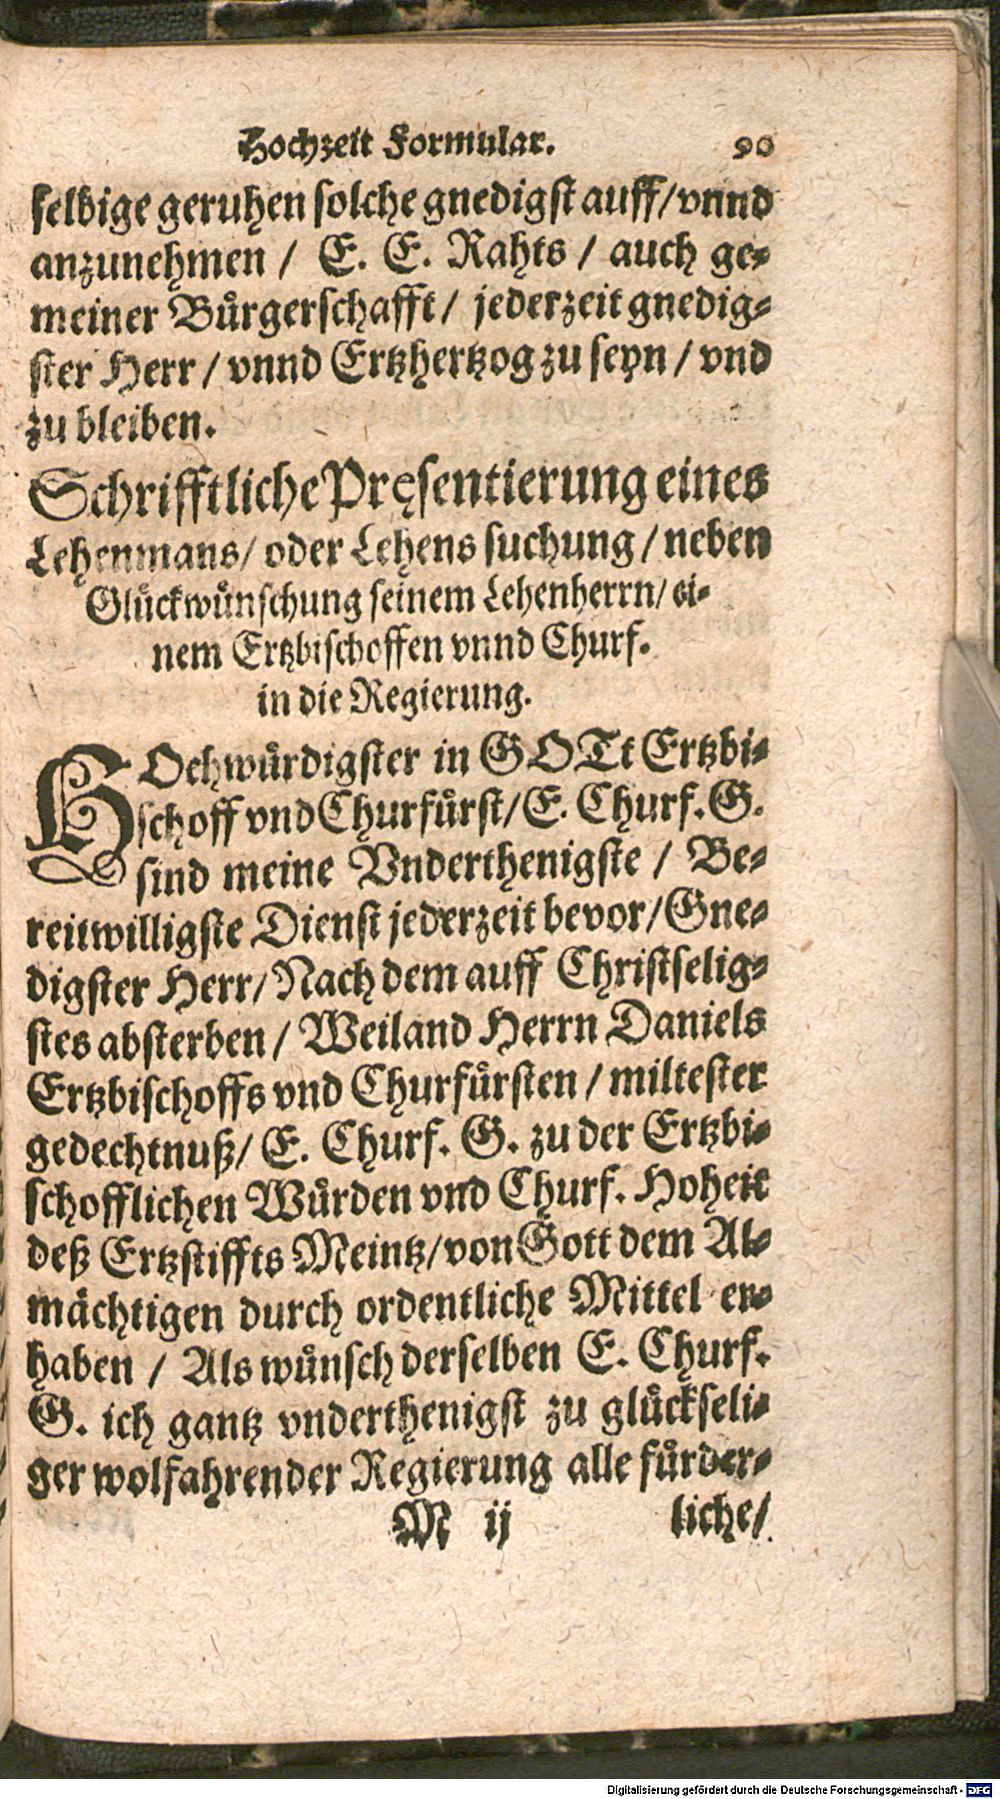 Hochzeit Formular. 90
selbige geruhen solche gnedigst auff/vnnd
anzunehmen / E. E. Rahts / auch ge-
meiner Bürgerschafft/ jederzeit gnedig-
ster Herr / vnnd Ertzhertzog zu seyn / vnd
zu bleiben.
Schrifftliche Pręsentierung eines
Lehenmans/ oder Lehens suchung / neben
Glückwünschung seinem Lehenherrn/ ei-
nem Ertzbischoffen vnnd Churf.
in die Regierung.
HOchwürdigster in GOTt Ertzbi-
schoff vnd Churfürst/E. Churf. G.
sind meine Vnderthenigste / Be-
reitwilligste Dienst jederzeit bevor/Gne-
digster Herr/Nach dem auff Christselig-
stes absterben / Weiland Herrn Daniels
Ertzbischoffs vnd Churfürsten / miltester
gedechtnuß/ E. Churf. G. zu der Ertzbi-
schofflichen Würden vnd Churf. Hoheit
deß Ertzstiffts Meintz/von Gott dem Al-
mächtigen durch ordentliche Mittel er-
haben / Als wünsch derselben E. Churf.
G. ich gantz vnderthenigst zu glückseli-
ger wolfahrender Regierung alle fürder-
M ij liche/
Digitalisierung gefördert durch die Deutsche Forschungsgemeinschaft - DFG